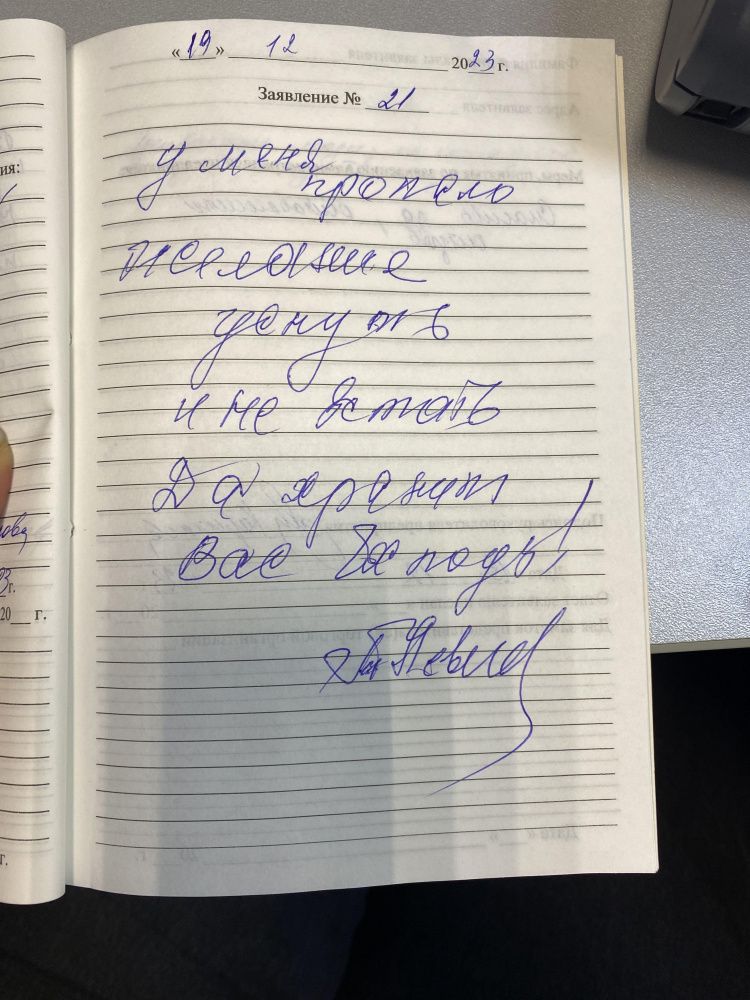 « 19 » 12 2023 г.
Заявление № 21
у меня
пропало
желание
уснуть
и не встать
Да хранит
Вас Господь!
ия:
ова
3 г.
20 г.
г.